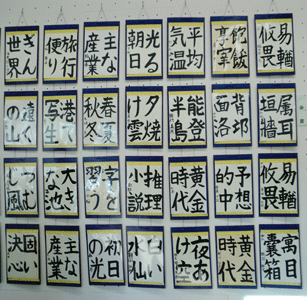 易輶攸畏
平均気温
光る朝日
主な産業
旅行便り
ぎん世界
属耳垣牆
背邙面洛
能登半島
夕焼け
春夏秋冬
港で写生
遠くの山
易輶攸畏
予想的中
黄金時代
推理小説
字を習う
大きな池
つむじ風
寓目嚢箱
黄金時代
夜あけ空
白い水仙
初日の光
主な産業
固い決心